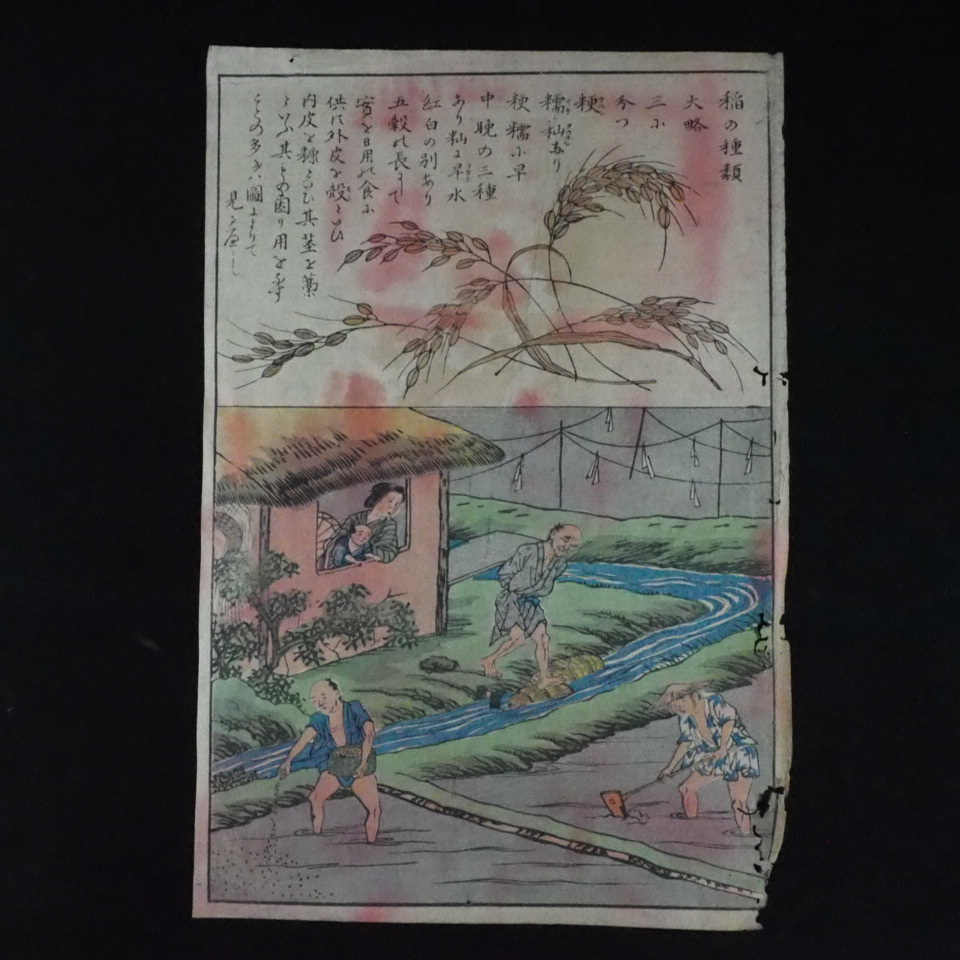 稲の種類
大略
三に
分つ
粳
糯秈あり
粳糯に早
中晩の三種
あり秈に早水
紅白の別あり
五穀の長にして
實を日用の食に
供に外皮を殻といひ
内皮を糠といひ其茎を藁
といふ其の用を
との多きハ圖によりて
見るべし